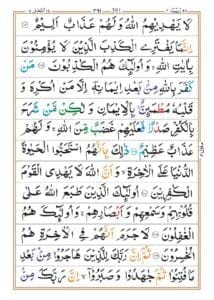 لَا يَهْدِيْهِمُ اللّٰهُ وَلَهُمْ عَذَابٌ اَلِيْمٌ
اِنَّمَا يَفْتَرِي الْكَذِبَ الَّذِيْنَ لَا يُؤْمِنُوْنَ
بِاٰيٰتِ اللّٰهِ ۚ وَاُولٰٓئِكَ هُمُ الْكٰذِبُوْنَ مَنْ
كَفَرَ بِاللّٰهِ مِنْۢ بَعْدِ اِيْمَانِهٖٓ اِلَّا مَنْ اُكْرِهَ وَ
قَلْبُهٗ مُطْمَئِنٌّۢ بِالْاِيْمَانِ وَلٰكِنْ مَّنْ شَرَحَ
بِالْكُفْرِ صَدْرًا فَعَلَيْهِمْ غَضَبٌ مِّنَ اللّٰهِ ۚ وَلَهُمْ
عَذَابٌ عَظِيْمٌ ذٰلِكَ بِاَنَّهُمُ اسْتَحَبُّوا الْحَيٰوةَ
الدُّنْيَا عَلَى الْاٰخِرَةِ ۙ وَاَنَّ اللّٰهَ لَا يَهْدِي الْقَوْمَ
الْكٰفِرِيْنَ اُولٰٓئِكَ الَّذِيْنَ طَبَعَ اللّٰهُ عَلٰى
قُلُوْبِهِمْ وَسَمْعِهِمْ وَاَبْصَارِهِمْ ۚ وَاُولٰٓئِكَ هُمُ
الْغٰفِلُوْنَ لَا جَرَمَ اَنَّهُمْ فِي الْاٰخِرَةِ هُمُ
الْخٰسِرُوْنَ ثُمَّ اِنَّ رَبَّكَ لِلَّذِيْنَ هَاجَرُوْا مِنْۢ بَعْدِ
مَا فُتِنُوْا ثُمَّ جٰهَدُوْا وَصَبَرُوْٓا ۙ اِنَّ رَبَّكَ مِنْۢ